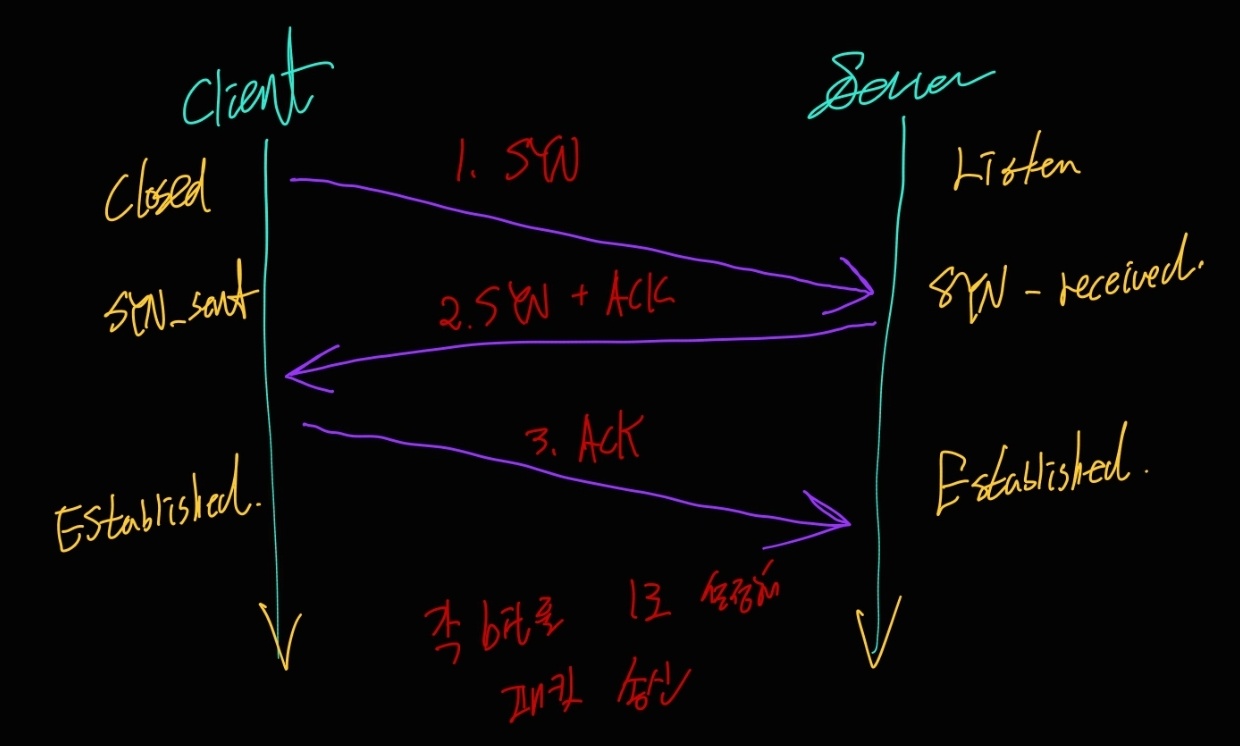 Client
Server
Closed
1. SYN
Listen
SYN_sent
2. SYN + ACK
SYN - received.
3. ACK
Established.
Established.
각 bit를 1로 설정해
패킷 송신